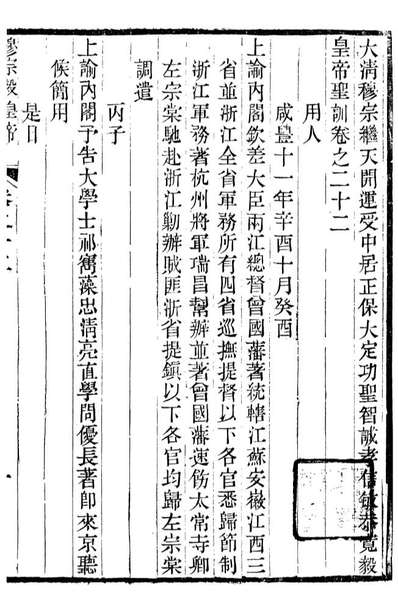 大清穆宗繼天開運受中居正保大定功聖智誠孝信敏恭寬毅
皇帝聖訓卷之二十二
用人
咸豐十一年辛酉十月癸酉
上諭內閣欽差大臣兩江總督曾國藩著統轄江蘇安徽江西三
省並浙江全省軍務所有四省巡撫提督以下各官悉歸節制
浙江軍務著杭州將軍瑞昌幫辦並著曾國藩速飭太常寺卿
左宗棠馳赴浙江勦辦賊匪浙省提鎮以下各官均歸左宗棠
調遣
丙子
上諭內閣予告大學士祁寯藻忠清亮直學問優長著即來京聽
候簡用
是日
穆宗毅皇帝